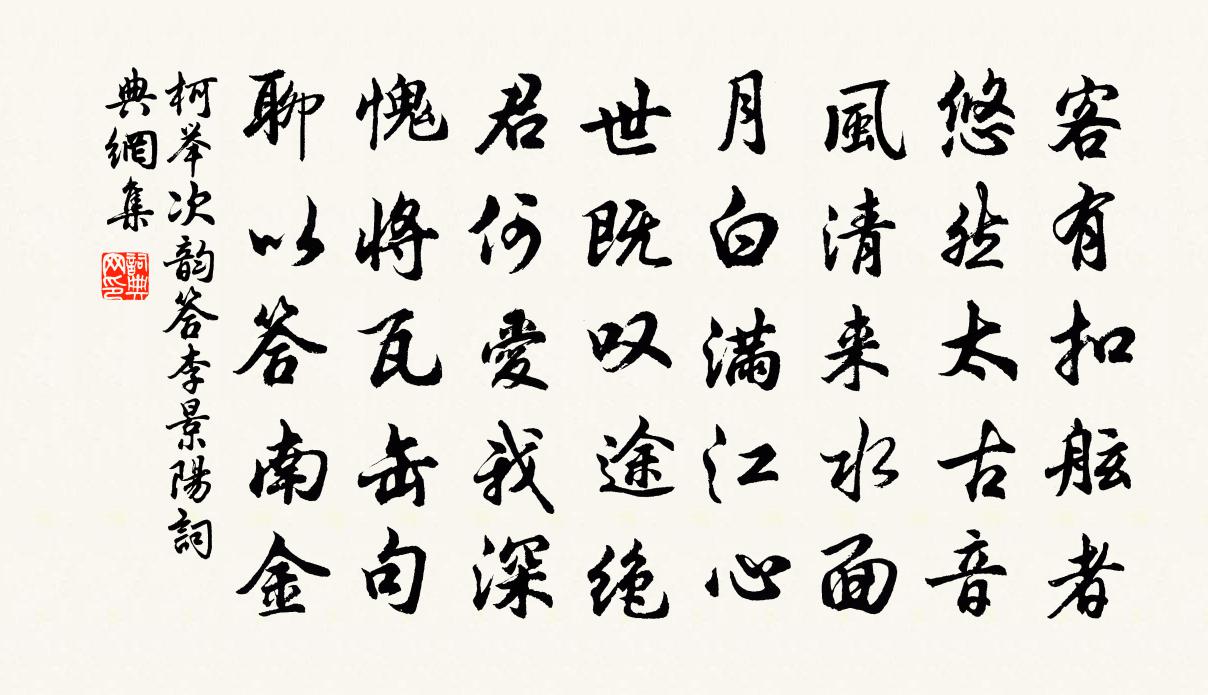 客有扣舷者
悠然太古音
風清来水面
月白满江心
世既叹途绝
君何愛我深
愧将瓦缶句
聊以答南金
柯举次韵答李景陽詞
典網集
詞典网印